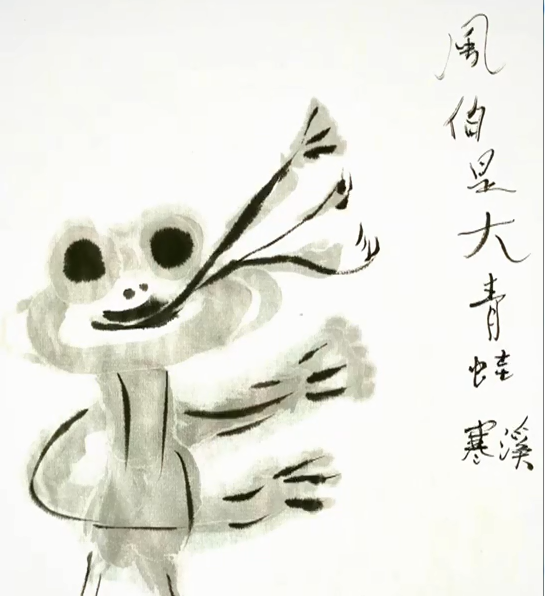 風伯是大青蛙
寒溪